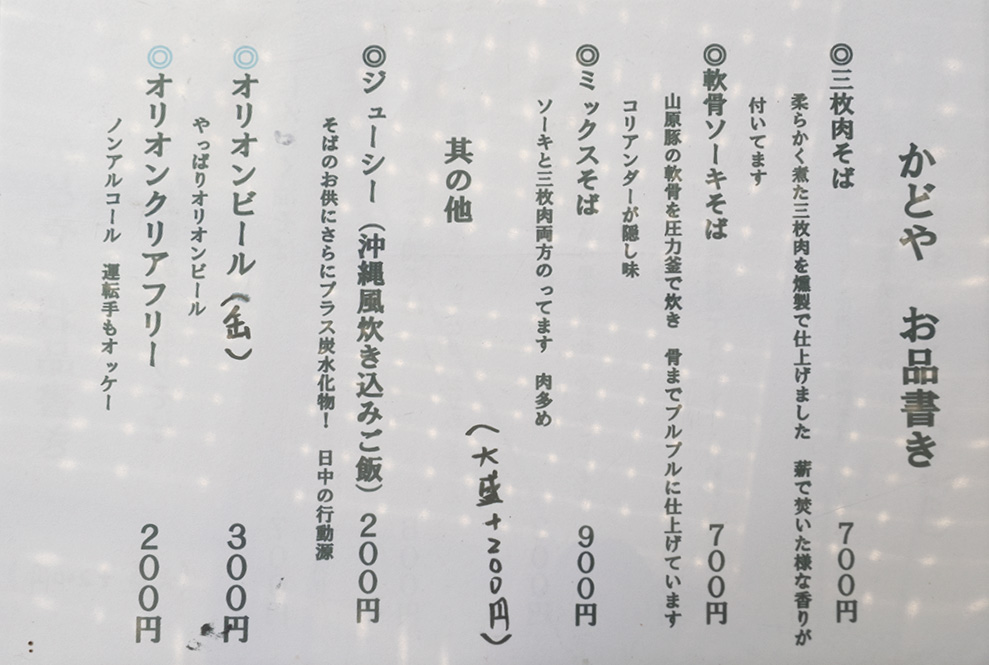 かどや　お品書き
◎三枚肉そば　７００円
柔らかく煮た三枚肉を燻製で仕上げました　薪で焚いた様な香りが
付いてます
◎軟骨ソーキそば　７００円
山原豚の軟骨を圧力釜で炊き　骨までプルプルに仕上げています
コリアンダーが隠し味
◎ミックスそば　９００円
ソーキと三枚肉両方のってます　肉多め
(大盛+200円)
其の他
◎ジューシー（沖縄風炊き込みご飯）２００円
そばのお供にさらにプラス炭水化物！　日中の行動源
◎オリオンビール(缶)　３００円
やっぱりオリオンビール
◎オリオンクリアフリー　２００円
ノンアルコール　運転手もオッケー